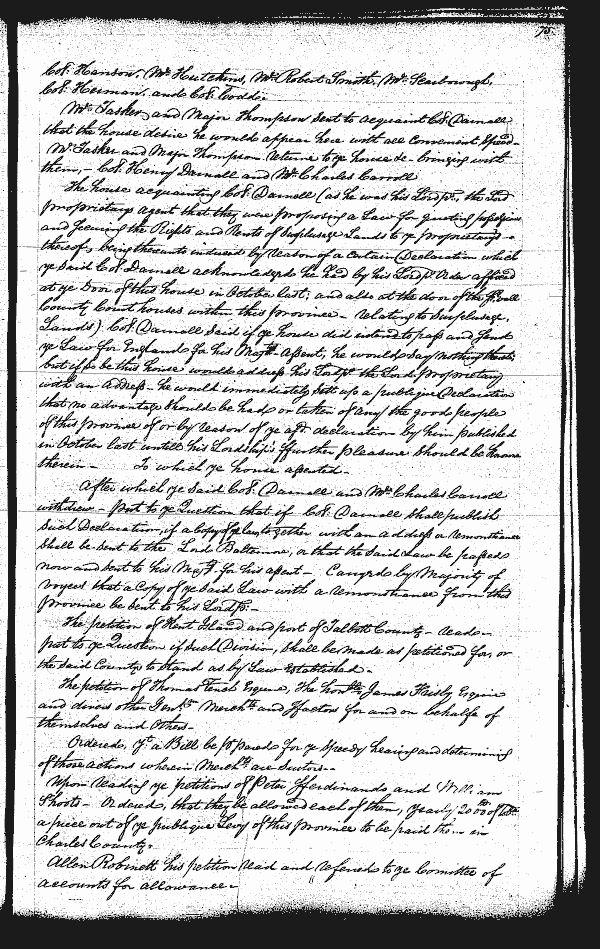 75.
Col. Hanson, Mr. Hutchins, Mr. Robert Smith, Mr. Scarborough,
Col. Herman, and Col. Codd:
Mr. Tasker, and Major Thompson sent to acquaint Col. Darnall
that the house desire he would appear here with all Convenient Speed.
Mr. Tasker and Major Thompson returne to ye house & bringing with
them, Col. Henry Darnall and Mr. Charles Carroll
The house acquainting Col. Darnall (as he was his Lordp. the Lord
proprietarys agent that they were proposing a Law for quieting possessions
and secureing the Rights and Rents of Surplusage Lands to ye proprietarys
thereof, being thereunto induced by reason of a Certain Declaration which
ye said Col. Darnall acknowledged he had by his Lordp. Order affixed
at ye Door of this house in October last, and also at the door of the
County Court houses within this province - relating to Surplusage
Lands) Col. Darnall said if ye house did intend to pass and send
ye Law for England for his Majts. Assent, he would say nothing
but if so be this house would address his Lordp. the Lord proprietary
with an Address he would immediately sett up a publique Declaration
that no advantage should be had or taken of any the good people
of this province of or by reason of ye afd. declaration by him published
in October last untill his Lordship's ffurther pleasure should be known
therein - To which ye house assented.
After which ye said Col. Darnall and Mr. Charles Carroll
withdrew - put to ye Question that if Col. Darnall shall publish
such Declaration, if a Copy of ye Law together with an address or remonstrance
shall be sent to the Lord Baltimore, or that the said Law be passed
now and sent to his Majt. for his assent - Carryed by Majority of
voyces that a Copy of ye said Law with a remonstrance from this
province be sent to his Lordp:
The petition of Kent Island and part of Talbott County - read -
put to ye Question if such Division, shall be made as petitioned for, or
the said County to stand as by Law Established.
The petition of Thomas Tench Esquire, The Honble. James Frisby Esquire
and divers other Gents. Merchts. and ffactors for and on behalfe of
themselves and Others -
Ordered, yt. a Bill be prepared for ye Speedy hearing and determining
of those actions wherein Merchts. are Suitors -
Upon reading ye petitions of Peter Fferdinando and William
Shoots - Ordered, that they be allowed each of them, yearly 2000 lb of Tob.
a piece out of ye publique Levy of this province to be paid them in
Charles County.
Allen Robinett his petition read and referred to ye Comittee of
accounts for allowance.